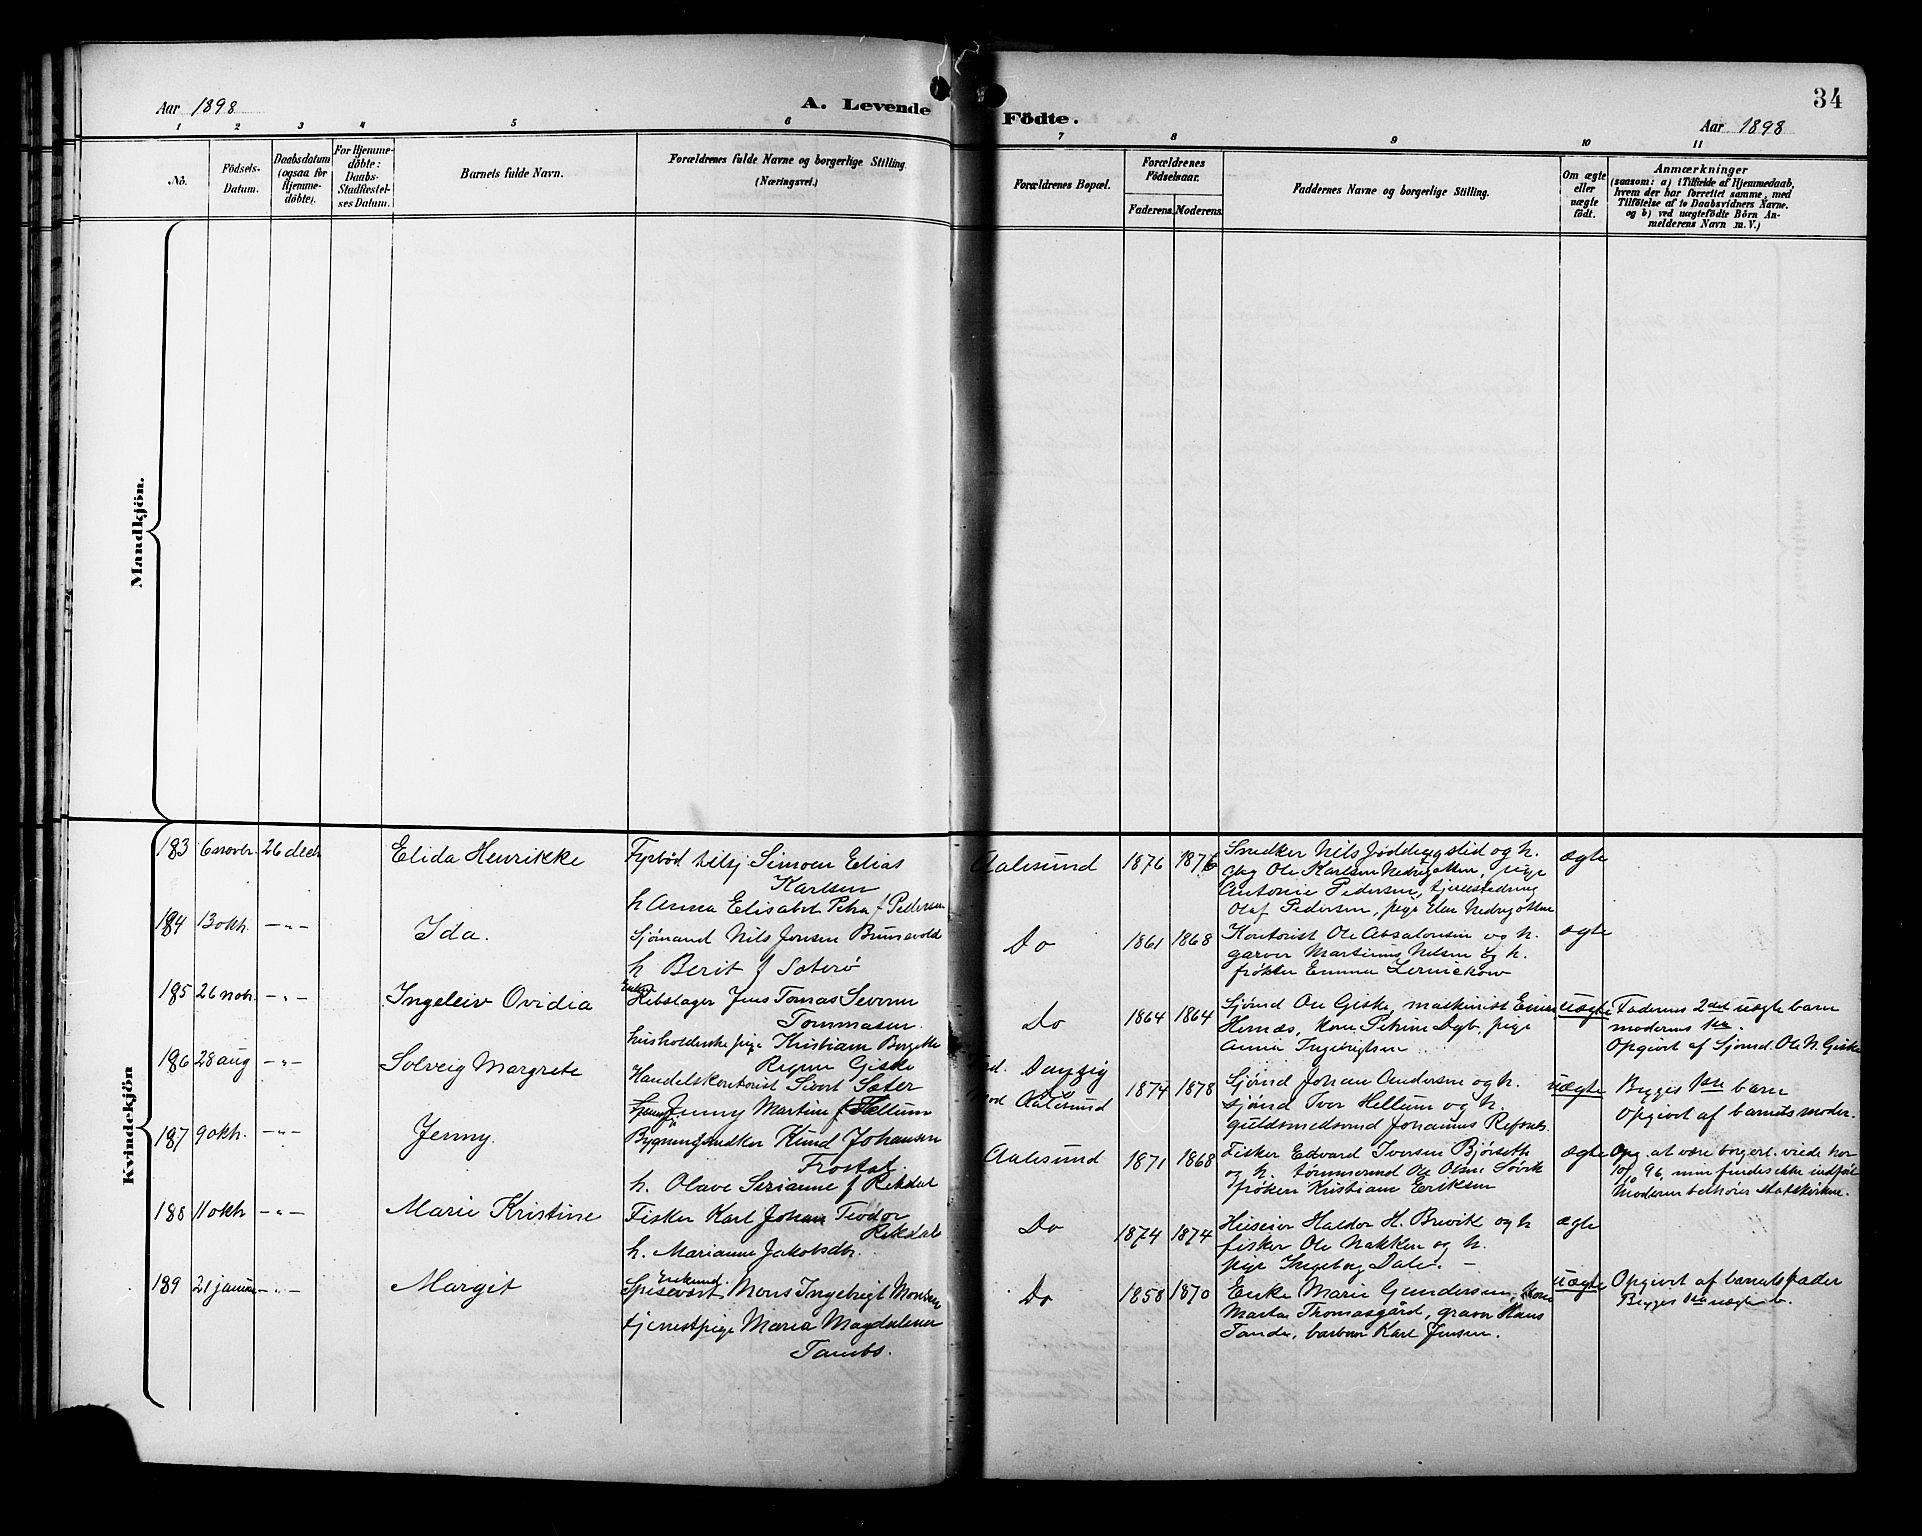 34
Aar 1898
A. Levende Födte.
Aar 1898
1 2 3 4 5 6 7 8 9 10 11
No.
Födsels-
Datum.
Daabsdatum
(ogsaa for
Hjemme-
döbte).
For Hjemme-
döbte:
Daabs-
Stadfæstel-
ses Datum.
Barnets fulde Navn.
Forældrenes fulde Navne og borgerlige Stilling
(Næringsvei.)
Forældrenes Bopæl.
Forældrenes
Födselsaar.
Faderens. Moderens.
Faddernes Navne og borgerlige Stilling.
Om ægte
eller
uægte
født.
Anmærkninger
(saasom: a) i Tilfælde af Hjemmedaab,
hvem der har forrettet samme, med
Tilföielse af to Daabsvidners Navne.
og b) ved uægtefödte Börn An-
melderens Navn m. V.)
Mandkjön.
Kvindekjön
183 6 novbr. 26 decb Elida Henrikke
Fyrbød Simoen Elias
Karlsen
h Anna Elisabet Petra f Pedersen
Aalesund 1876 1876
Snedker Nils og h.
Ole Karlsen Nedregotten, pige
Antonie Pedersen, tjenestedreng
Olaf Pedersen, pige Elen Nedregotten
ægte
184 13 okt. — " — Ida.
Sjømand Nils Jensen Brunsvold
h Berit f Saterø
Do 1861 1868
Kontorist Ole Absalonsen og h.
garver Martinus Nilsen og h.
frøken Emma
ægte
185 26 nob. — " — Ingeleiv Ovidia
Enkem Rebslager Jens Tomas Severin
Tommasen
husholderske pige Kristiane Birgitte
Regine Giske
Do 1864 1864
Sjømd Ole Giske, maskinist
Hernæs, kone Petrine Dyb, pige
Anna Ingebrigtsen
uægte
Faderens 2det uægte barn
moderens 1ste.
Opgivet af Sjømd. Ole N. Giske
186 28 aug — " — Solveig Margrete
Handelskontorist Sivert Sæter
Jenny Martine f Hellum
Fad. Danzig
Mod Aalesund
1874 1878
Sjømd Johan Andersen og h.
sjømd Ivar Hellum og h.
guldsmedsvend Johannes
uægte
Begges 1ste barn
Opgivet af barnets moder.
187 9 okt. — " — Jenny.
Bygningssnedker Knud Johansen
Frostad.
h. Olave Serianne f Rekdal
Aalesund 1871 1868
Fisker Edvard Iversen Bjørseth
og h. tømmermd Ole Olsen Søvik
frøken Kristiane Eriksen
ægte
Opg. at være borgerl. viede hor
10/5 96, men findes ikke indført
Moderen tilhører statskirken.
188 11 okt — " — Marie Kristine
Fisker Karl Johan Teodor
Rekdal
h. Marianne Jakobsdtr.
Do 1874 1874
Huseier Haldor H. Brevik og h
fisker Ole Nakken og h.
pige Ingeborg Dale. —
ægte
189 21 januar — " — Margit
Enkemd.
Spisevært Mons Ingebrigt Monsen
tjenestpige Maria Magdalena
Tambs.
Do 1858 1870
Enke Marie Gundersen, kone
Marta Thomasgård, graver Hans
Tande, barber Karl Jensen.
uægte
Opgivet af barnets fader
Begges 1ste uægte b.